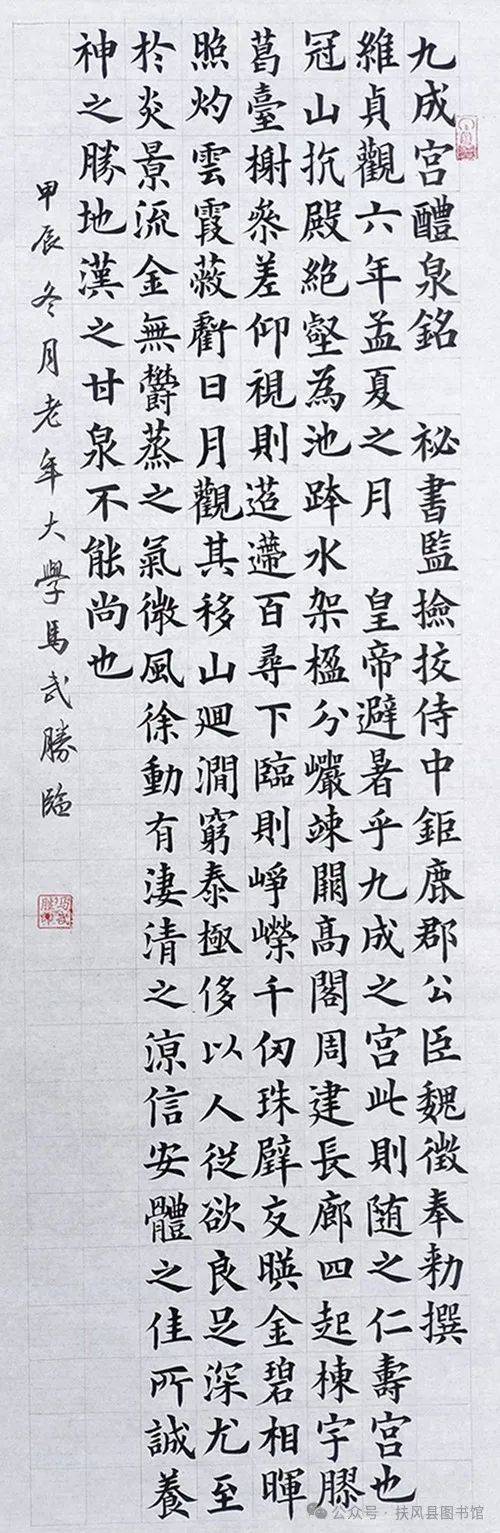 九成宮醴泉銘 祕書監撿挍侍中鉅鹿郡公臣魏徵奉勑撰
維貞觀六年孟夏之月 皇帝避暑乎九成之宮此則随之仁壽宮也
冠山抗殿絕壑為池跨水架楹分巖竦闕高閣周建長廊四起棟宇膠
葛臺榭叅差仰視則迢遰百尋下臨則崢嶸千仞珠璧交暎金碧相暉
照灼雲霞蔽虧日月觀其移山迴澗窮泰極侈以人従欲良足深尤至
於炎景流金無鬱蒸之氣微風徐動有淒清之涼信安體之佳所誠養
神之勝地漢之甘泉不能尚也
甲辰冬月老年大學馬武勝臨
公众号·扶风县图书馆